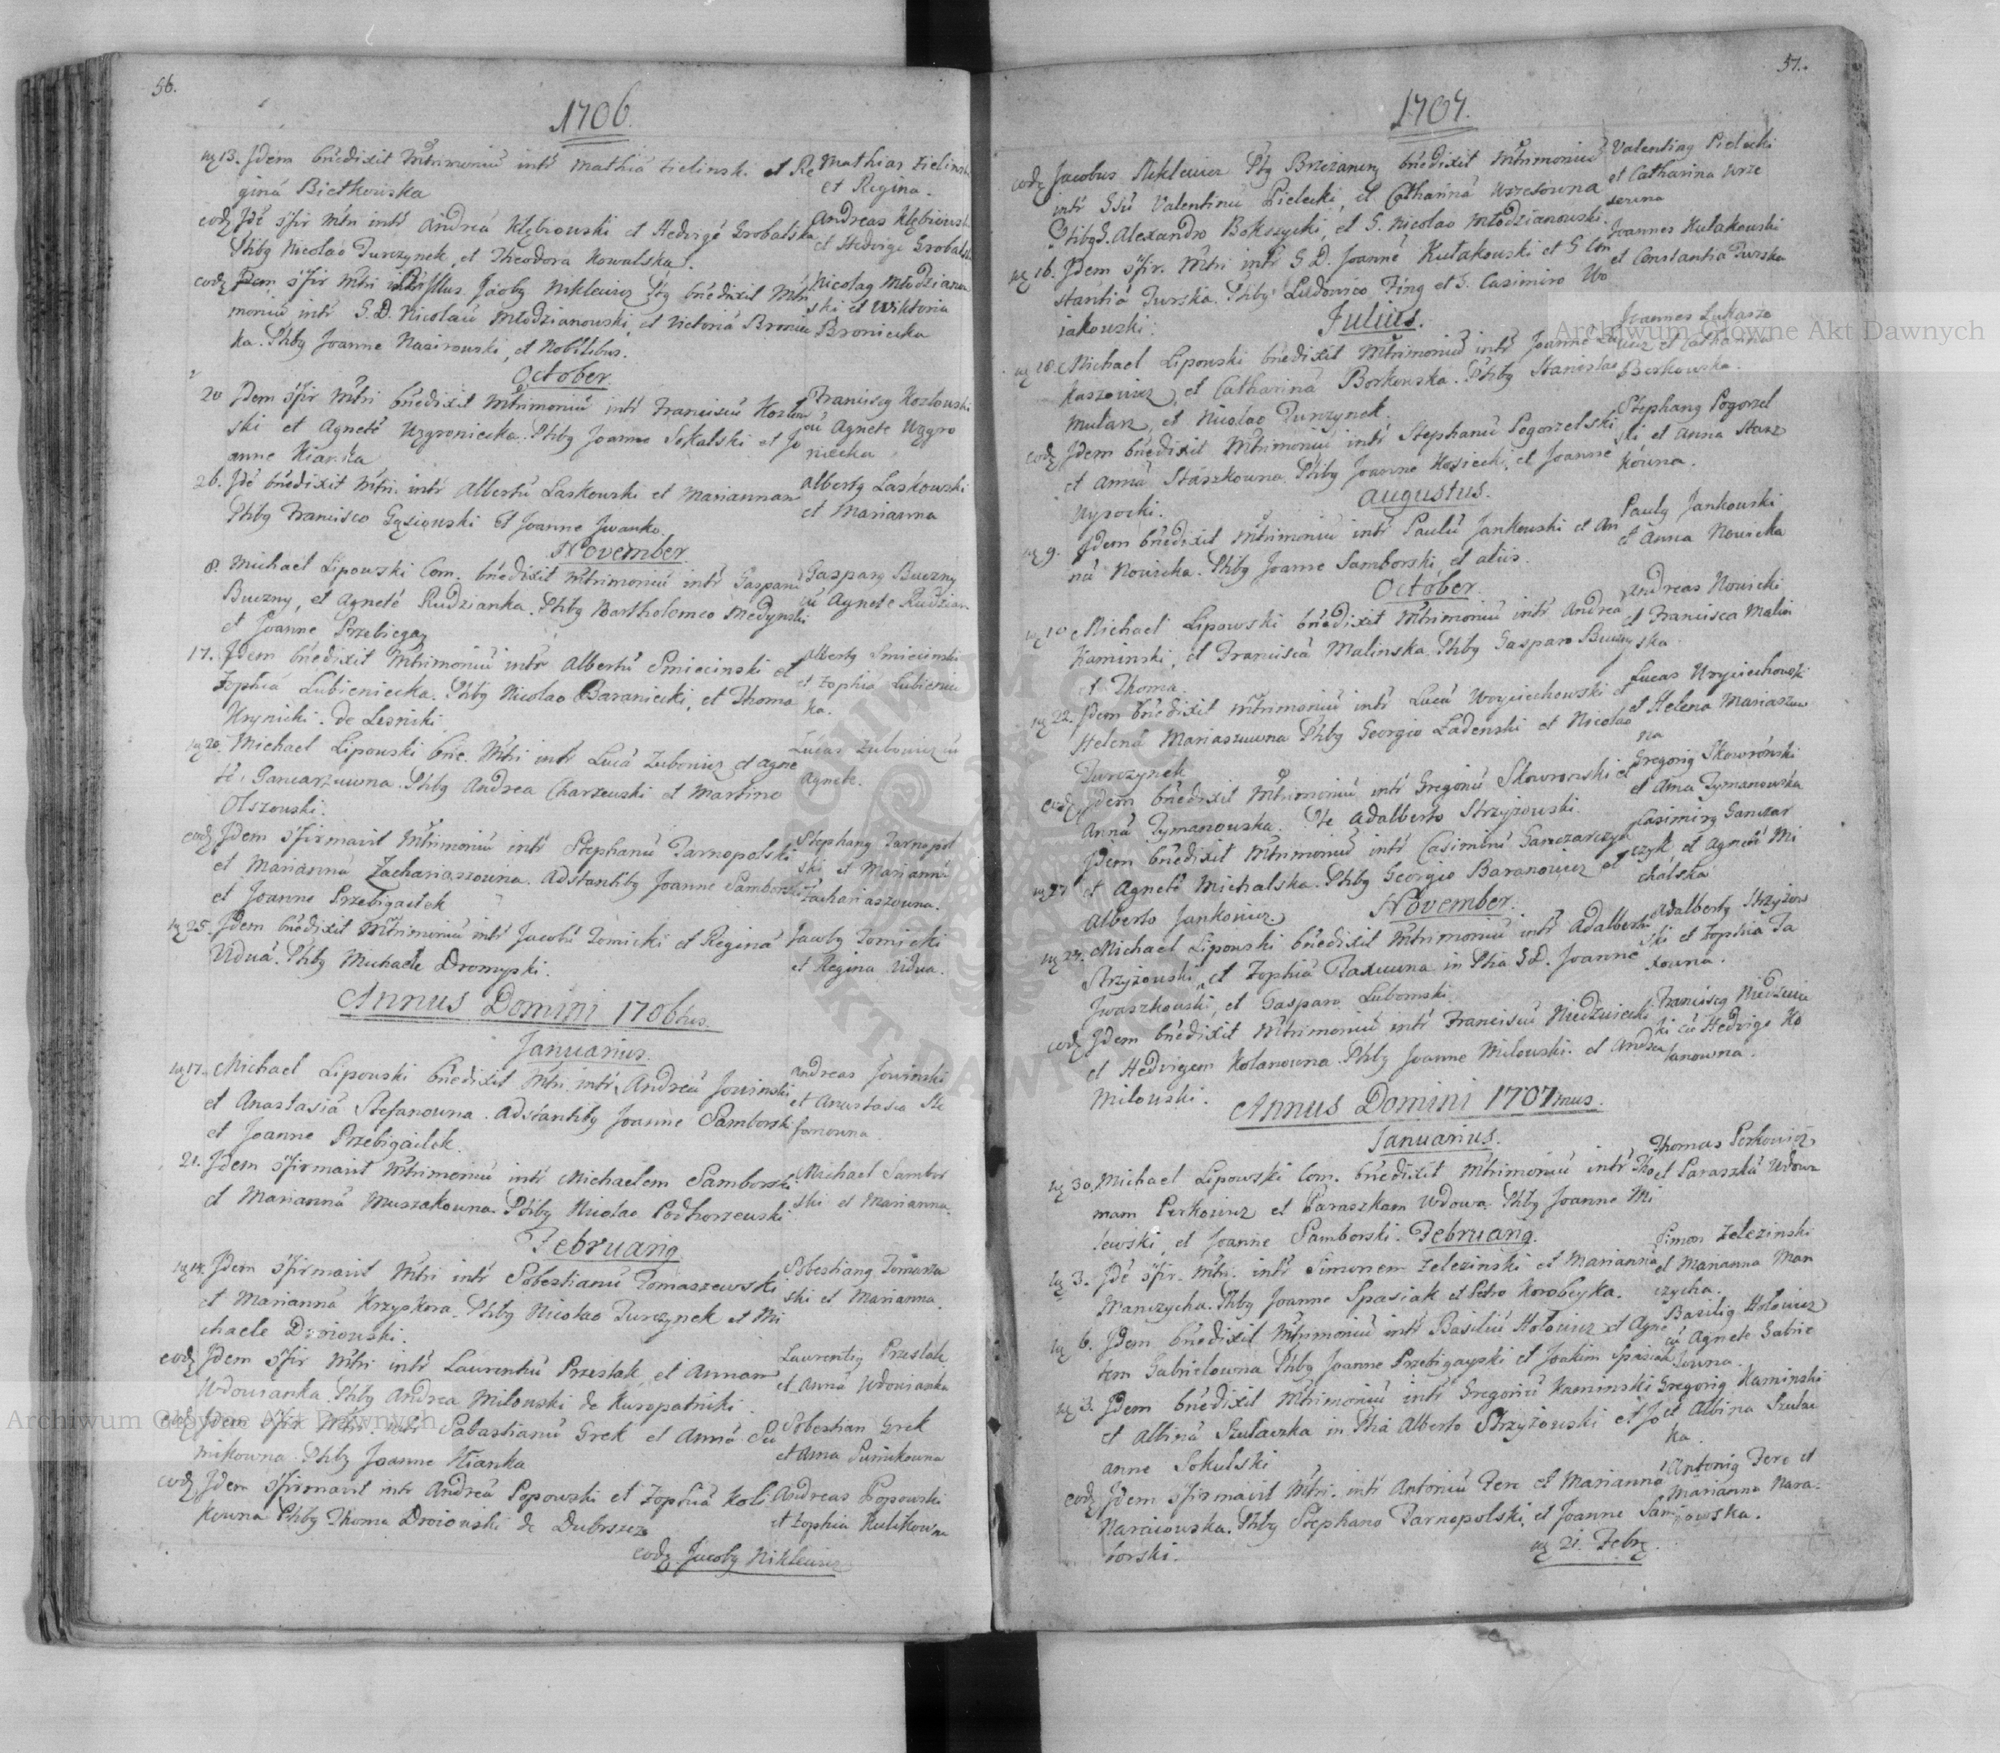 56.
1706.
uę 13. Jdem bńedixit Mtrimoniũ intr Mathiã Zielinski et Re
giná Bietkowska
Mathias Zielinski
et Regina.
eodę Jdẽ ɔfir Mtri intr Andreã Kłębowski et Hedvigẽ Grobalska
Pńtibg Nicolao Turczynek, et Theodora Kowalska.
Andreas Klębowski
et Hedvige Grobalska
eodę Jllus. Jacobg Niklewicz Ppg bńedixit Mtri
moniũ intr G. D. Nicolaũ Młodzianowski, et Victoriã Bronic
ka. Pntibg Joanne Nasirowski, et Nobilibus.
Nicolag Młodzianow
ski et Wiktoria
Broniecka
October
20 Jdem ɔfir Mtri bńedixit Mtrimoniũ intr Franciscũ Kozłow
ski et Agnetẽ Uzgroniecka. Pntibg Joanne Sokalski et Jo
anne Kiarka
Franciscg Kozłowski
cũ Agnete Uzgro
niecka
26. Jdẽ bńedixit Mtri. intr Albertũ Laskowski et Mariannam
Pntibg Francisco Gąsiowski et Joanne Jwanko.
Albertg Laskowski
et Marianna
November
8. Michael Lipowski Com. bńedixit Mtrimoniũ intr Gasparũ
Buczny, et Agnetẽ Rudzianka. Pntibg Bartholomeo Medynski
et Joanne Przebiegaę
Gasparg Buczny
cũ Agnete Rudzian
17. Jdem bńedixit Mtrimoniũ intr Albertũ Smiecinski et
Zophiã Lubieniecka. Pntibg Nicolao Baraniecki, et Thoma
Krynicki. de Lesniki
Albertg Smiecinski
et Zophia Lubieniec
ka.
uę 20. Michael Lipowski bńe. Mtri intr Lucã Zubowicz et Agne
tẽ, Gancarzuwna. Pntibg Andrea Charzewski et Martino
Olszowski.
Lucas Zubowicz cũ
Agnete.
eodę Jdem ɔfirmavit Mtrimoniũ intr Stephanũ Tarnopolski
et Mariannã Zachariaszowna. Adstantibg Joanne Samborski
et Joanne Przebigailek
Stephang Tarnopol
ski et Marianna
Zachariaszowna.
uę 25. Jdem bńedixit Mtrimoniũ intr Jacobũ Tomicki et Reginã
Viduã. Pntibg Michaele Dromyski.
Jacobg Tomicki
et Regina Vidua.
Annus Domini 1706tus.
Januarius.
uę 17. Michael Lipowski bńedixit Mtri. intr Andreã Jowinski
et Anastasiã Stefanowna. Adstantibg Joanne Samborsk
et Joanne Przebigailek.
Andreas Jowinski
et Anastasia Ste
fanowna.
21. Jdem ɔfirmavit Mtrimoniũ intr Michaelem Samborski
et Mariannã Muszakowna. Pntibg Nicolao Podhorzewski
Michael Sambor
ski et Marianna.
Februarig
uę 14. Jdem ɔfirmavit Mtri intr Sobestianũ Tomaszewski
et Mariannã Krzyskora. Pntibg Nicolao Turczynek et Mi
chaele Droiowski.
Sobestiang Tomasze
ski et Marianna.
eodę Jdem ɔfir Mtri intr Laurentiũ Przeslak et Annam
Wdowianka. Pntibg Andrea Milowski de Kuropatniki.
Laurentig Przeslak
et Annã Wdowianka
eodę Jdem ɔfir Mtri. intr Sabastianũ Grek et Annã Su
mikowna. Pntibg Joanne Kianka
Sobestian Grek
et Anna Sumikowna
eodę Jdem ɔfirmavit intr Andreã Popowski et Zophiã Koli
kowna Pntibg Thoma Droiowski de Dubrszcz
Andreas Popowski
et Zophia Kulikowna
eodę. Jacobg Niklewicz
57.
1707.
eodę Jacobus Niklewicz Ppg Brzezanenę bńedixit Mtrimoniũ
intr Gsũ Valentinũ Pielecki, et Catharinã Wrzesowna
Pntibg G. Alexandro Bokszycki, et G. Nicolao Młodzianowski.
Valentiag Pielecki
et Catharina Wrze
sewna
uę 16. Jdem ɔfir. Mtri intr G. D. Joannẽ Kułakowski et G Con
stantiã Turska. Pntibg Ludowico Fing et G. Casimiro Wo
iakowski.
Joannes Kułakowski
et Constantia Turska
Julius.
uę 18. Michael Lipowski bńedixit Mtrimoniũ intr Joannẽ Lu
kaszowicz, et Catharinã Borkowska. Pntibg Stanislao
Mularz, et Nicolao Turczynek.
Joannes Lukasze
wicz et Catharina
Borkowska.
eodę Jdem bńedixit Mtrimoniũ intr Stephanũ Pogorzelski
et Annã Staszkowna. Pntibg Joanne Kosiecki, et Joanne
Wysocki.
Stephang Pogorzel
ski et Anna Stasz
kowna.
Augustus.
uę 9. Jdem bńedixit Mtrimoniũ intr Paulũ Jankowski et An
nã Nowicka. Pntibg Joanne Samborski, et aliis.
Paulg Jankowski
et Anna Nowicka
October.
uę 10 Michael Lipowski bńedixit Mtrimoniũ intr Andrea
Kaminski, et Franciscã Malinska. Pntibg Gasparo Buczny
et Thoma.
Andreas Nowicki
et Francisca Malin
ska.
uę 22. Jdem bńedixit Mtrimoniũ intr Lucã Woyciechowski et
Helenã Mariaszuwna Pntibg Georgio Ladenski et Nicolao
Turczynek
Lucas Woyciechowski
et Helena Mariaszuw
na
eodę Jdem bńedixit Mtrimoniũ intr Gregoriũ Skowronski et
Annã Tymanowska. Pte Adalberto Strzyzowski.
Gregorig Skowronski
et Anna Tymanowska
uę 27 Jdem bńedixit Mtrimoniũ intr Casimirũ Ganczarczyk
et Agnetẽ Michalska. Pntibg Georgio Baranowicz et
Alberto Jankowicz.
Casimirg Ganczar
czyk et Agnes Mi
chalska
November.
uę 27. Michael Lipowski bńedixit Mtrimoniũ intr Adalbertũ
Strzyzowski, et Zophiã Taxuwna in Ptia GD. Joanne
Jwaszkowski, et Gasparo Lubomski.
Adalbertg Strzyzow
ski et Zophia Ta
xowna.
eodę Jdem bńedixit Mtrimoniũ intr Franciscũ Niedzwiecki
et Hedvigem Kolanowna. Pntibg Joanne Milowski. et Andrea
Milowski.
Franciscg Niedzwie
ki cũ Hedvige Ko
lanowna.
Annus Domini 1707mus.
Januarius.
uę 30. Michael Lipowski Com. bńedixit Mtrimoniũ intr Tho
mam Perkowicz et Paraszkam Wdowa. Pntibg Joanne Mi
lewski, et Joanne Samborski.
Thomas Perkowicz
et Paraszka Wdowa
Februarig.
uę 3. Jdẽ ɔfir. Mtri. intr Simonem Zelezinski et Mariannã
Manczycha. Pntibg Joanne Spasiak et Petro Korobeyka.
Simon Zelezinski
et Marianna Man
czycha.
uę 6. Jdem bńedixit Mtrimoniũ intr Basiliũ Hołowicz et Agne
tem Gabrielowna Pntibg Joanne Przebigayski et Joakim Spasiak
Basilig Hołowicz
cũ Agnete Gabrie
lowna.
uę 3. Jdem bńedixit Mtrimoniũ intr Gregoriũ Kaminski
et Albinã Szulaczka in Ptia Alberto Strzyzowski et Jo
anne Sokulski
Gregorig Kaminski
et Albina Szulac
ka.
eodę Jdem ɔfirmavit Mtri. intr Antoniũ Fere et Mariannã
Naraiowska. Pntibg Stephano Tarnopolski, et Joanne Sam
borski.
Antonig Fere et
Marianna Nara
iowska.
uę 21. Febrę.
Archiwum Główne Akt Dawnych
Archiwum Główne Akt Dawnych